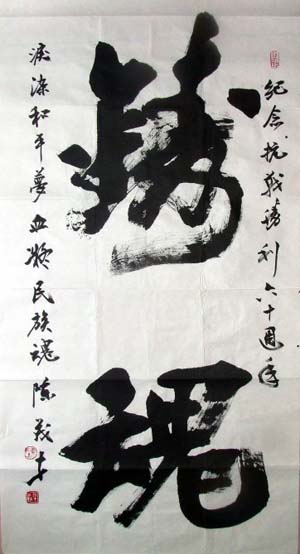 紀念抗戰勝利六十週年
鑄魂
淚染和平夢血凝民族魂